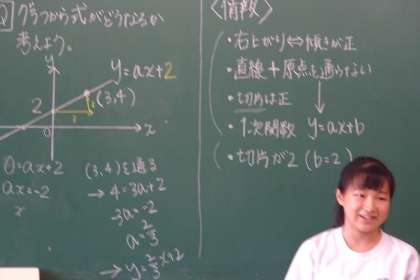 Q グラフから式がどうなるか
考えよう。
y
y=ax+2
2
(3,4)
1
0
x
0=ax+2
ax=-2
x
(3,4)を通る
→ 4=3a+2
-3a=-2
a=2/3
→ y=2/3x+2
〈情報〉
・右上がり⇔傾きが正
・直線+原点を通らない
・切片は正
・1次関数 y=ax+b
・切片が2 (b=2)